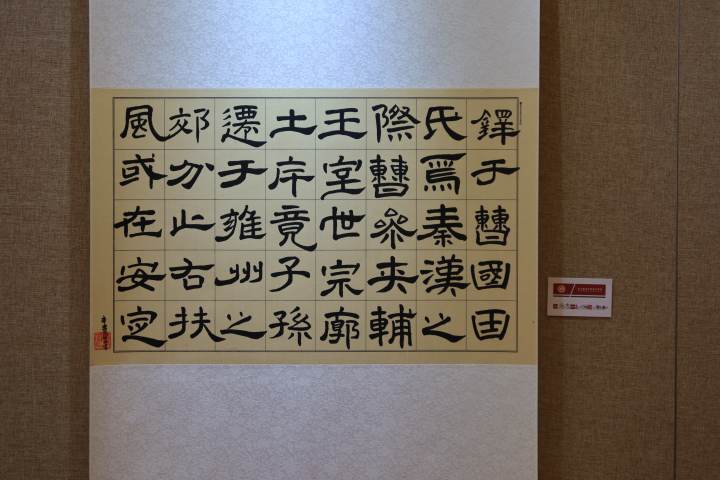 鐸于曹國因
氏焉秦漢之
際曹參夾輔
王室世宗廓
土斥竟子孫
遷于雍州之
郊分止右扶
風或在安定